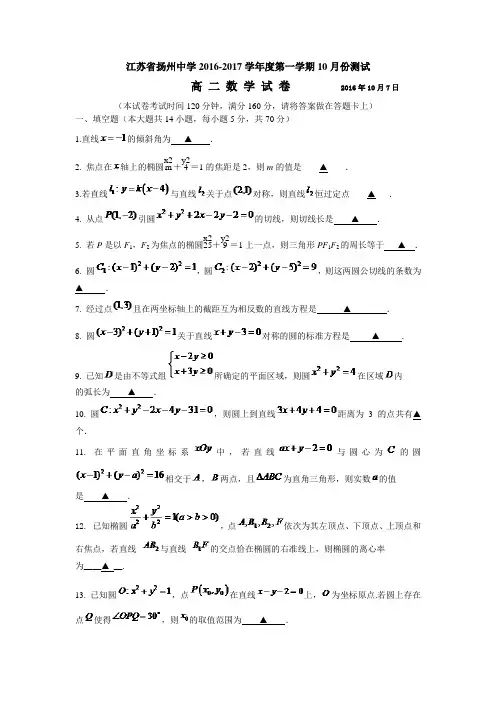 江苏省扬州中学2016-2017学年度第一学期10月份测试
高 二 数 学 试 卷 2016年10月7日
(本试卷考试时间120分钟,满分160分,请将答案做在答题卡上)
一、填空题(本大题共14小题,每小题5分,共70分)
1.直线x=-1的倾斜角为 ▲ .
2. 焦点在x轴上的椭圆x2/m+y2/4=1的焦距是2,则m的值是 ▲ .
3.若直线l₁:y=k(x-4)与直线l₂关于点(2,1)对称,则直线l₂恒过定点 ▲ .
4. 从点P(1,-2)引圆x²+y²+2x-2y-2=0的切线,则切线长是 ▲ .
5. 若P是以F₁,F₂为焦点的椭圆x2/25+y2/9=1上一点,则三角形PF₁F₂的周长等于 ▲ .
6. 圆C₁:(x-1)²+(y-2)²=1,圆C₂:(x-2)²+(y-5)²=9,则这两圆公切线的条数为
▲ .
7. 经过点(1,3)且在两坐标轴上的截距互为相反数的直线方程是 ▲ .
8. 圆(x-3)²+(y+1)²=1关于直线x+y-3=0对称的圆的标准方程是 ▲ .
9. 已知D是由不等式组{x-2y≥0 x+3y≥0所确定的平面区域,则圆x²+y²=4在区域D内
的弧长为 ▲ .
10. 圆C:x²+y²-2x-4y-31=0,则圆上到直线3x+4y+4=0距离为3的点共有▲
个.
11. 在平面直角坐标系xOy中,若直线ax+y-2=0与圆心为C的圆
(x-1)²+(y-a)²=16相交于A,B两点,且ΔABC为直角三角形,则实数a的值
是 ▲ .
12. 已知椭圆x²/a²+y²/b²=1(a>b>0),点A,B₁,B₂,F依次为其左顶点、下顶点、上顶点和
右焦点,若直线 AB₂与直线 B₁F的交点恰在椭圆的右准线上,则椭圆的离心率
为 ▲ .
13. 已知圆O:x²+y²=1,点P(x₀,y₀)在直线x-y-2=0上,O为坐标原点.若圆上存在
点Q使得∠OPQ=30°,则x₀的取值范围为 ▲ .